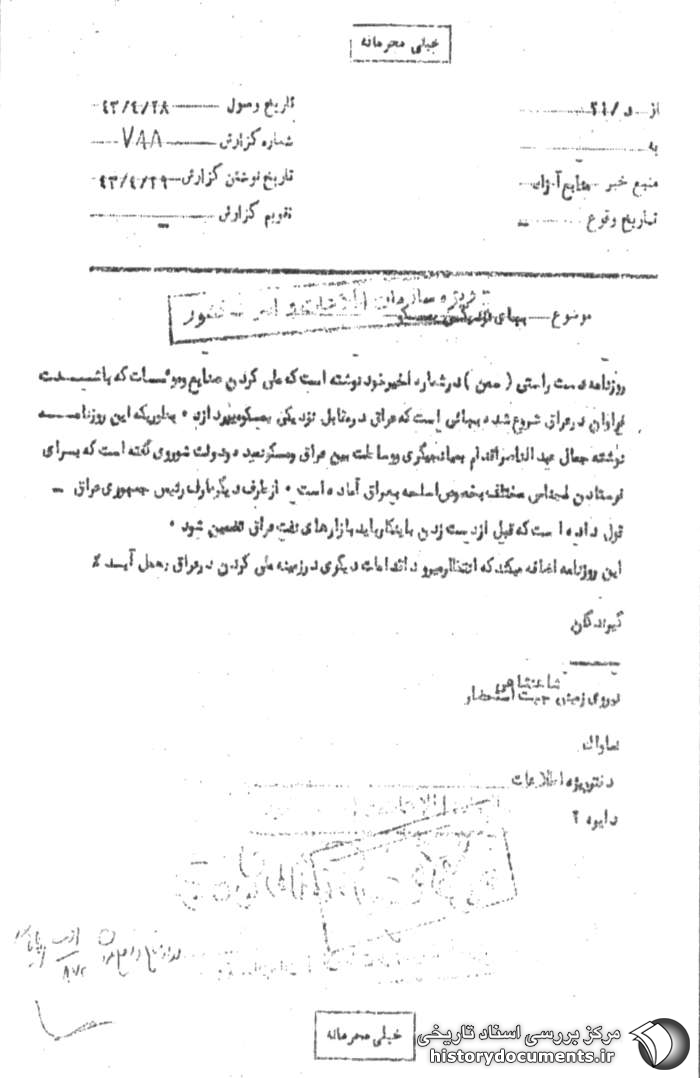 خیلی محرمانه
از د/۲۱
به
منبع خبر منابع آزاد
تاریخ وقوع
تاریخ وصول ۴۳/۴/۲۸
شماره گزارش ۷۸۸
تاریخ نوشتن گزارش ۴۳/۴/۲۹
تقویم گزارش
موضوع بهای نزدیکی بمسکو
روزنامه دست راستی ( ) در شماره اخیر خود نوشته است که ملی کردن صنایع و موسسات که با شدت
فراوان در عراق شروع شده بهائی است که عراق در مقابل نزدیکی بمسکو میپردازد ۰ بطوریکه این روزنامه
نوشته جمال عبدالناصر اقدام بمیانجیگری و وساطت بین عراق و مسکو نموده و دولت شوروی گفته است که برای
فرستادن اجناس مختلف بخصوص اسلحه بعراق آماده است ۰ از طرف دیگر عارف رئیس جمهوری عراق
قول داده است که قبل از دست زدن باینکار باید بازارهای نفت عراق تضمین شود ۰
این روزنامه اضافه میکند که انتظار میرود اقدامات دیگری در زمینه ملی کردن در عراق بعمل آید ٪
گیرندگان
نیروی زمینی شاهنشاهی جهت استحضار
ساواک
دفتر ویژه اطلاعات
دایره ۲
خیلی محرمانه
مرکز بررسی اسناد تاریخی
historydocuments.ir